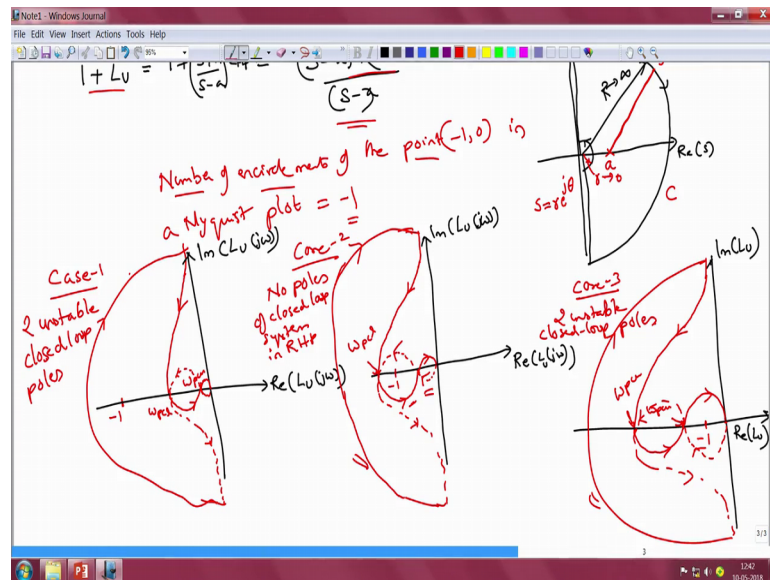 Note1 - Windows Journal
File Edit View Insert Actions Tools Help
95%
1 + Lu = 1 +
(s-a)
(s-a)
R→∞
Re(s)
a
r→0
s=re^jθ
C
Number of encirclements of the point (-1,0) in
a Nyquist plot = -1
Im(Lu(jω))
Case-1
2 unstable
closed loop
poles
-1
Re(Lu(jω))
Im(Lu(jω))
Case-2
No poles
of closed loop
system
in RHP
-1
Re(Lu(jω))
Im(Lu)
Case-3
2 unstable
closed-loop poles
-1
Re(Lu)
3/3
3
12:42
10-05-2018